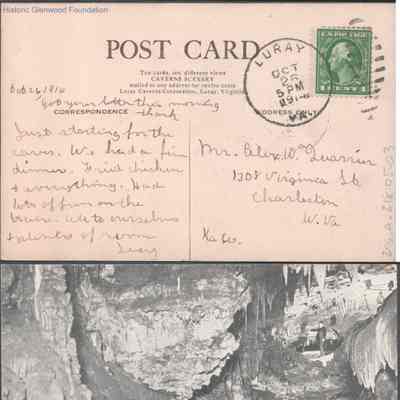 Historic Glenwood Foundation
POST CARD
Ten cards, ten different views
CAVERNS SCENERY
mailed to any address for twelve cents
Luray Caverns Corporation, Luray, Virginia
CORRESPONDENCE
ADDRESS ONLY
LURAY
OCT
26
5 PM
1914
VA.
1 CENT 1
Oct 26, 1914
Got yours this morning
thank
Just starting for the
caves. We had a fine
dinner. Fried chicken
& everything. Had
lots of fun on the
to ourselves
& plenty of room
Mr. Alex. W. Quarrier
1308 Virginia St
Charleston
W. Va
Ka Co.